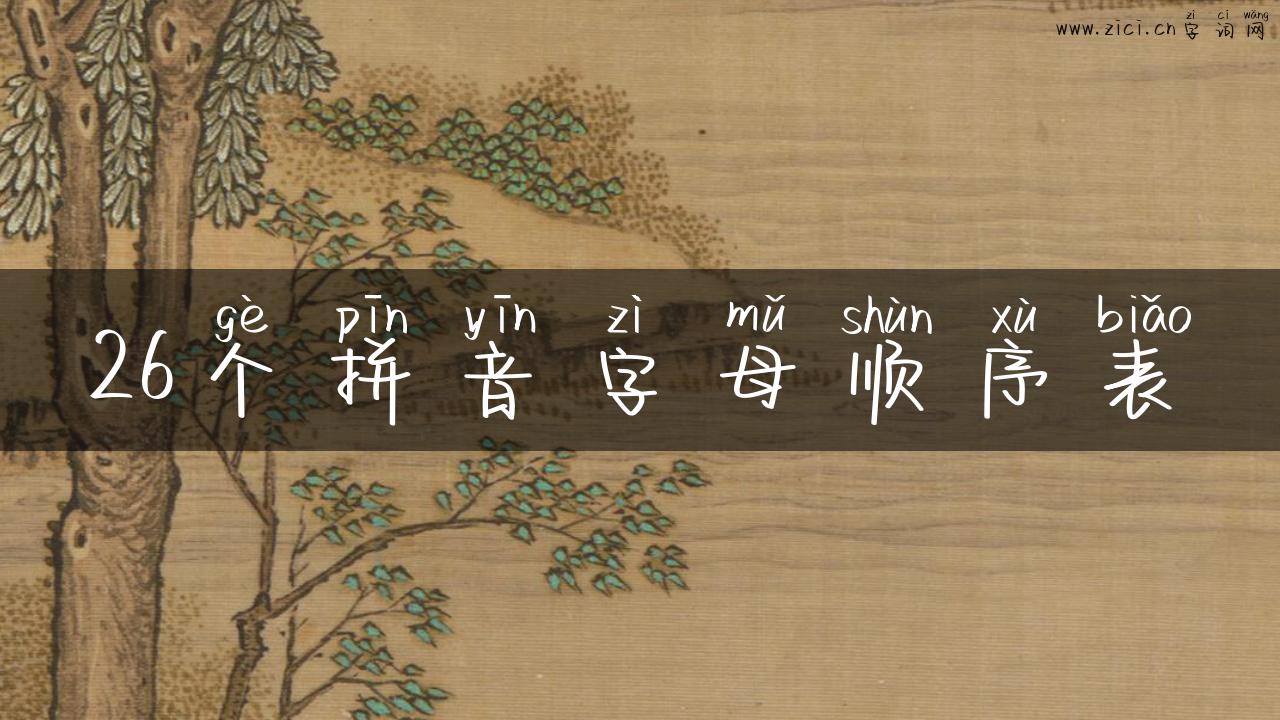 zì cí wǎng
www.zici.cn字词网
gè pīn yīn zì mǔ shùn xù biǎo
26个拼音字母顺序表